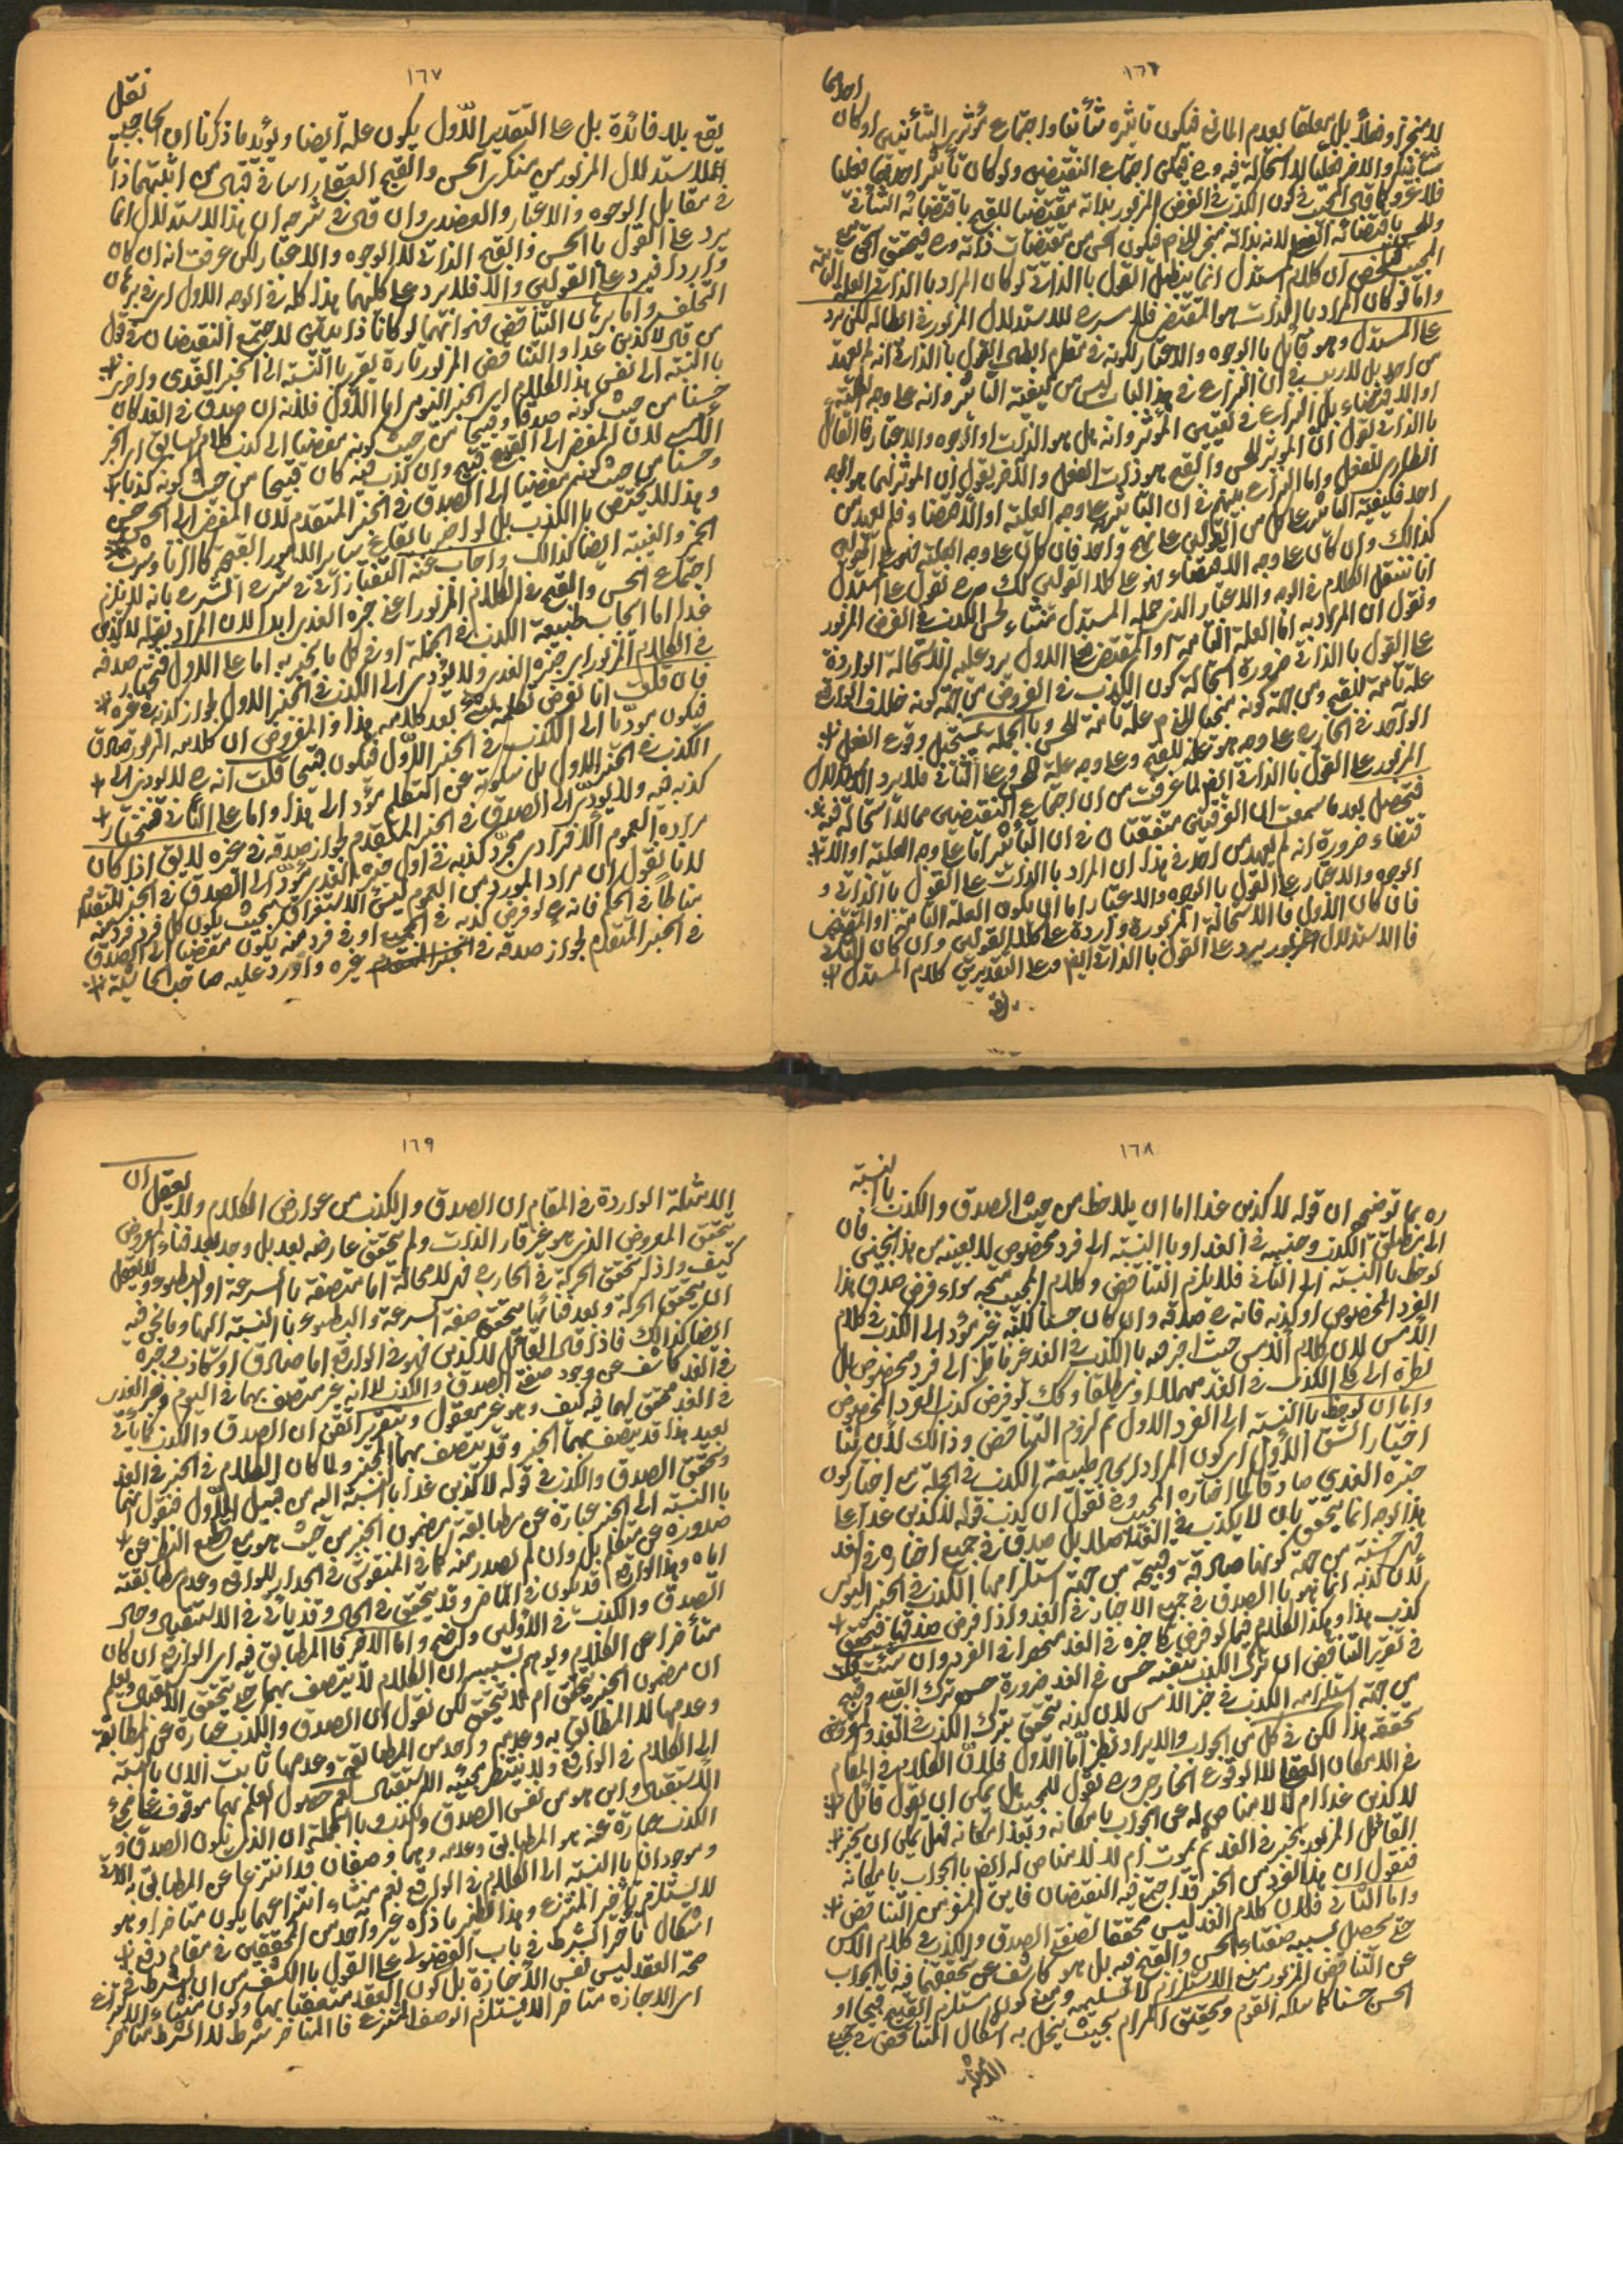 ١٦٦
لا منجزا وفعلا بل معلقا لعدم المانع فيكون تاثيره شأنيا واجتماع مؤثرين الشأنيين او كان احدهما
شأنيا والاخر فعليا لا استحالة فيه وح فيمكن اجتماع النقيضين ولو كان تأثير احدهما فعليا
فلا غرو كما في المجيب في كون الكذب في الفرض المزبور بذاته مقتضيا للقبح باقتضائه الشأني
المجيب فتلخص ان كلام المستدل انما يبطل القول بالذاتي لو كان المراد بالذاتي العلة التامة
واما لو كان المراد بالذات هو المقتضي فلا مسرح للاستدلال المزبور في ابطاله لكن يرد
على المستدل وهو قائل بالوجوه والاعتبار لكونه في مقام ابطال القول بالذاتي انه لم يعهد
من احد بل لا ريب في ان النزاع في هذا الباب ليس من كيفية التأثير وانه على وجه العلية
او الاقتضاء بل النزاع في تعيين المؤثر وانه هل هو الذات او الوجوه والاعتبار فالقائل
بالذاتي يقول ان المؤثر للحسن والقبح هو ذات الفعل والاخر يقول ان المؤثر لهما هو الوجه
الطاري للفعل واما النزاع بينهم في ان التأثير على وجه العلية او الاقتضاء فلم يعهد من
احد فكيفية التأثير على كل من القولين على نهج واحد فان كان على وجه العلية فهو على القولين
كذالك وان كان على وجه الاقتضاء فهو على كلا القولين كك وح نقول على المستدل
انا ننقل الكلام في الوجه والاعتبار الذي جعله المستدل منشاء لحسن الكذب في الفرض المزبور
ونقول ان المراد به اما العلة التامة او المقتضي فعلى الاول يرد عليه الاستحالة الواردة
على القول بالذاتي ضرورة استحالة كون الكذب في الفرض من جهة كونه خلاف الواقع
علة تامة للقبح ومن جهة كونه منجيا للنبي علة تامة للحسن وبالجملة يستحيل وقوع الفعل
الواحد في الخارج على وجه هو علة للقبح وعلى وجه علة للحسن وعلى الثاني فلا يرد الاستدلال
المزبور على القول بالذاتي ايضا لما عرفت من ان اجتماع المقتضيين مما لا استحالة فيه
فتحصل بعد ما سمعت ان الفريقين متفقتان في ان التأثير اما على وجه العلية او الاقتضاء
ضرورة انه لم يعهد من احد في هذا ان المراد بالذات على القول بالذاتي و
الوجوه والاعتبار على القول بالوجوه والاعتبار اما ان يكون العلة التامة او المقتضي
فان كان الاول فالاستحالة المزبورة واردة على كلا القولين وان كان الثاني
فالاستدلال المزبور يرد على القول بالذاتي ايضا وعلى التقديرين كلام المستدل
١٦٧
يقع بلا فائدة بل على التقدير الاول يكون عليه ايضا ويؤيد ما ذكرنا ان الحاجبي نقل
الاستدلال المزبور من منكري الحسن والقبح العقلي راسا في قبال من اثبتهما ذاتا
في مقابل الوجوه والاعتبار والعضدي وان قال في شرحه ان هذا الاستدلال انما
يرد على القول بالحسن والقبح الذاتي لا الوجوه والاعتبار لكن عرفت انه ان كان
واردا فيرد على القولين والا فلا يرد على كليهما هذا كله في الوجه الاول اي في برهان
الخلف واما برهان التناقض فهو انهما لو كانا ذاتيين لاجتمع النقيضان في قول
من قال لاكذبن غدا والتناقض المزبور تارة يقرر بالنسبة الى الخبر الغدي واخرى
بالنسبة الى نفس هذا الكلام اي الخبر اليومي اما الاول فلانه ان صدق في الغد كان
حسنا من حيث كونه صدقا وقبيحا من حيث كونه مفضيا الى كذب كلامه السابق اي الخبر
الامس لان المفضي الى القبيح قبيح وان كذب فيه كان قبيحا من حيث كونه كذبا
وحسنا من حيث كونه مفضيا الى الصدق في الخبر المتقدم لان المفضي الى الحسن حسن
وهذا لا يختص بالكذب بل لو اخبر بايقاع ساير الامور القبيحة كالزنا وشرب
الخمر والغيبة ايضا كذالك واجاب عنه التفتازاني في شرح الشرح بانه لا يلزم
اجتماع الحسن والقبح في الكلام المزبور اعني خبره الغدي ابدا لان المراد بقوله لاكذبن
غدا اما ايجاب طبيعة الكذب في الجملة او في كل ما يخبر به اما على الاول فنختار صدقه
في الكلام المزبور اي خبره الغدي ولا يؤدي الى الكذب في الخبر الاول لجواز كذبه في غيره
فان قلت انا نفرض تكلمه بعد كلامه هذا والمفروض ان كلامه المزبور صادق
فيكون مؤديا الى الكذب في الخبر الاول فيكون قبيحا قلت انه ح لا يؤدي الى
الكذب في الخبر الاول بل سكوته عن التكلم مؤد الى هذا واما على الثاني فنختار
كذبه فيه ولا يؤدي الى الصدق في الخبر المتقدم لجواز صدقه في غيره لا يق اذا كان
مراده العموم الافرادي مجرد كذبه في اول خبره الغدي مؤد الى الصدق في الخبر المتقدم
لانا نقول ان مراد المورد من العموم ليس الاستغراق بحيث يكون كل فرد فرد منه
مناطا في الحكم فانه ح لو فرض كذبه في الجميع او في فرد منه يكون مفضيا الى الصدق
في الخبر المتقدم لجواز صدقه في غيره واورد عليه صاحب الحاشية
١٦٨
ره بما توضيحه ان قوله لاكذبن غدا اما ان يلاحظ من حيث الصدق والكذب بالنسبة
الى مطلق الكذب وجنسه في الغد او بالنسبة الى فرد مخصوص لا بعينه من هذا الجنس فان
لوحظ بالنسبة الى الثاني فلا يلزم التناقض وكلام المجيب متجه سواء فرض صدق هذا
الفرد المخصوص او كذبه فانه ح صدقه وان كان حسنا لكنه غير مؤد الى الكذب في كلام
الامس لان كلام الامس حيث اخبر هو بالكذب في الغد غير ناظر الى فرد مخصوص بل
نظره الى كلي الكذب في الغد مهملا او مطلقا وكك لو فرض كذب الفرد المخصوص
واما ان لوحظ بالنسبة الى الفرد الاول تم لزوم التناقض وذالك لأن لنا
اختيار الشق الاول اي كون المراد ايجاب طبيعة الكذب في الجملة مع اختيار كون
خبره الغدي صادقا كما اختاره المجيب وح نقول ان كذب قوله لاكذبن غدا على
هذا الوجه انما يتحقق بان لا يكذب في الغد اصلا بل صدق في جميع اخباره في الغد
فهي حسنة من جهة كونها صادقة وقبيحة من جهة استلزامها الكذب في الخبر اليومي
لان كذبه انما هو بالصدق في جميع الاخبار في الغد واذا فرض صدقها فتحقق
كذب هذا وهكذا الكلام فيما لو فرض خبره في الغد منحصرا في الفرد وان شئت قلت
في تقرير التناقض ان ترك الكذب بنفسه حسن في الغد ضرورة حسن ترك القبيح وقبيح
من جهة استلزامه الكذب في خبر الامس لان كذبه تحقق بترك الكذب في الغد والمفروض
تحققه هذا لكن في كل من الجواب والايراد نظر اما الاول فلان الكلام في المقام
في الامكان العقلي لا الوقوع الخارجي وح نقول للمجيب هل يمكن ان يقول قائل
لاكذبن غدا ام لا لا مناص له عن الجواب بامكانه وبعد امكانه فهل يمكن ان يخبر
القائل المزبور بخبر في الغد ثم يموت ام لا لا مناص له ايضا بالجواب بامكانه
فنقول ان هذا الفرد من الخبر قد اجتمع فيه النقيضان فاين المفر من التناقض
واما الثاني فلان كلام الغد ليس محققا لصفة الصدق والكذب في كلام الامس
حتى يحصل بسببه صفتاء الحسن والقبح فيه بل هو كاشف عن تحققهما فيه فالجواب
عن التناقض المزبور منع الاستلزام لا تسليمه ومنع كون مستلزم القبيح قبيحا او
الحسن حسنا كما سلكه القوم وتحقيق المرام بحيث ينحل به اشكال التناقض في جميع
الامثلة
١٦٩
الامثلة الواردة في المقام ان الصدق والكذب من عوارض الكلام ولا يعقل ان
يتحقق المعروض الذي هو غير قار الذات ولم يتحقق عارضه بعد بل وجد بعد فناء المعروض
كيف واذا تحقق الحركة في الخارج فهي لا محالة اما متصفة بالسرعة او البطوء ولا يعقل
ان يتحقق الحركة وبعد فنائها يتحقق صفة السرعة والبطوء بالنسبة اليها وما نحن فيه
ايضا كذالك فاذا قال القائل لاكذبن فهو في الواقع اما صادق او كاذب وخبره
في الغد كاشف عن وجود صفتي الصدق والكذب لا انه غير متصف بهما في اليوم وخبر الغدي
في الغد محقق لهما فيه كيف وهو غير معقول وبتقرير اتقن ان الصدق والكذب كما يأتي
بعيد هذا قد يتصف بهما الخبر وقد يتصف بهما المخبر ولما كان الكلام في الخبر في الغد
وتحقق الصدق والكذب في قوله لاكذبن غدا بالنسبة اليه من قبيل الاول فنقول انهما
بالنسبة الى الخبر عبارة عن مطابقة مضمون الخبر من حيث هو مع قطع النظر عن
صدوره عن متكلم بل وان لم يصدر منه كما في المنقوش في الجدار للواقع وعدم مطابقته
اياه وهذا الواقع قد يكون في الماضي وقد يتحقق في الحال وقد يأتي في الاستقبال وحال
الصدق والكذب في الاولين واضح واما الاخر فالمطابق فيه اي الواقع ان كان
متأخرا عن الكلام ويوهم بسببه ان الكلام لا يتصف بهما حتى يتحقق الاستقبال ويعلم
ان مضمون الخبر يتحقق ام لا يتحقق لكن نقول ان الصدق والكذب عبارة عن المطابقة
وعدمها لا المطابق به وعدمه وواحد من المطابقة وعدمها ثابت الان بالنسبة
الى الكلام في الواقع ولا ينتظر بمجيئه الاستقبال نعم حصول العلم بهما موقوف على مجيئ
الاستقبال واين هو من نفس الصدق والكذب وبالجملة ان الذي يكون الصدق و
الكذب عبارة عنه هو المطابق وعدمه وهما وصفان قد انتزعا عن المطابق به الاتي
وموجودان بالنسبة الى الكلام في الواقع نعم منشاء انتزاعهما يكون متأخرا وهو
لا يستلزم تأخر المنتزع وهذا نظير ما ذكره غير واحد من المحققين في مقام دفع
اشكال تأخر الشرط في باب الفضولي على القول بالكشف من ان الشرط في
صحة العقد ليس نفس الاجازة بل كون العقد متعقبا بها وكون منشاء الانتزاع
اي الاجازة متأخرا لا يستلزم الوصف المنتزع فالمتأخر شرط لا الشرط متأخر